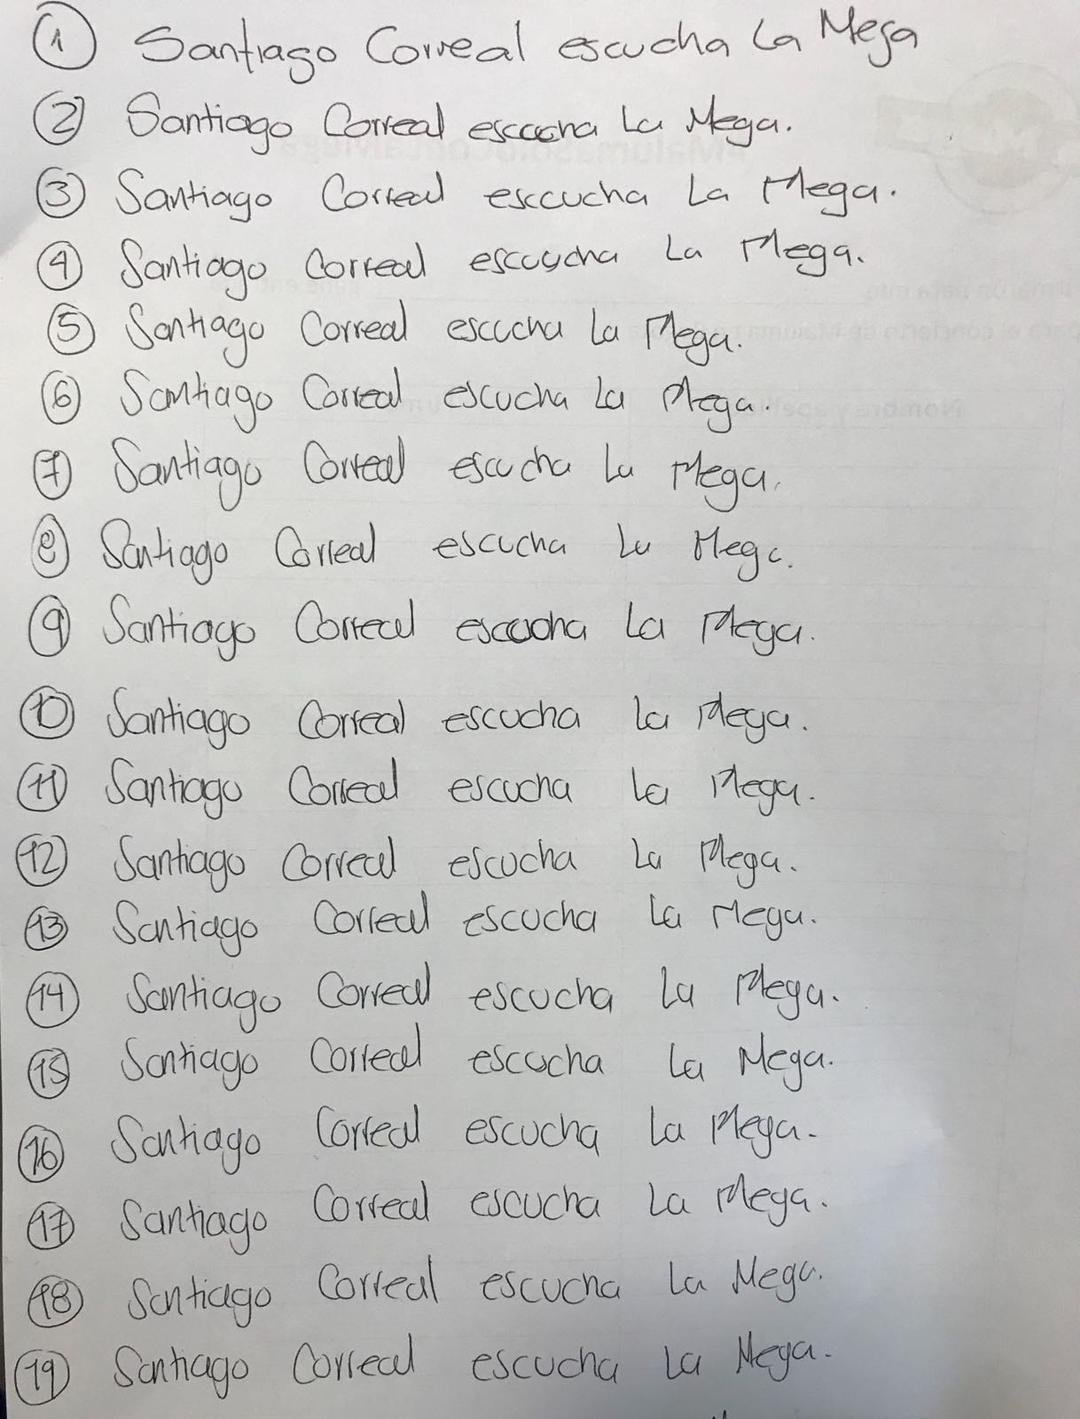 1 Santiago Correal escucha La Mega
2 Santiago Correal escucha La Mega.
3 Santiago Correal esccucha La Mega.
4 Santiago Correal escuucha La Mega.
5 Santiago Correal escucha La Mega.
6 Santiago Correal escucha La Mega.
7 Santiago Correal escucha La Mega.
8 Santiago Correal escucha La Mega.
9 Santiago Correal escucha La Mega.
10 Santiago Correal escucha La Mega.
11 Santiago Correal escucha La Mega.
12 Santiago Correal escucha La Mega.
13 Santiago Correal escucha La Mega.
14 Santiago Correal escucha La Mega.
15 Santiago Correal escucha La Mega.
16 Santiago Correal escucha La Mega.
17 Santiago Correal escucha La Mega.
18 Santiago Correal escucha La Mega.
19 Santiago Correal escucha La Mega.